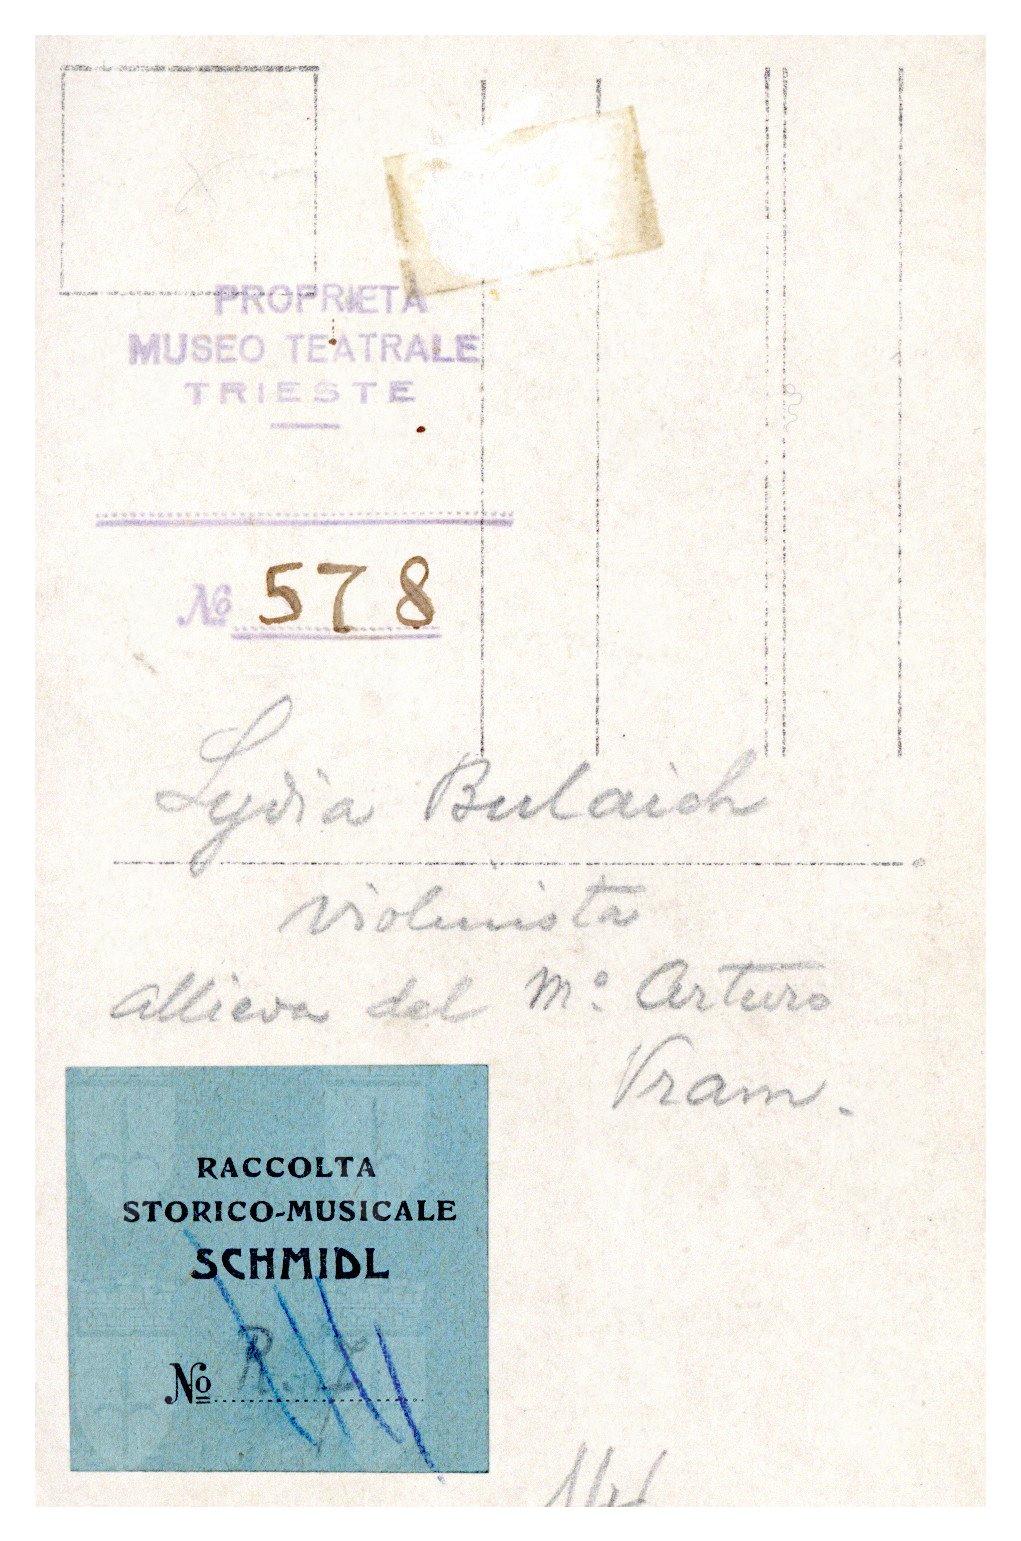 PROPRIETÀ
MUSEO TEATRALE
TRIESTE
No 578
Lydia Bulaich
violinista
allieva del M.° Arturo
Vram.
RACCOLTA
STORICO-MUSICALE
SCHMIDL
No R.